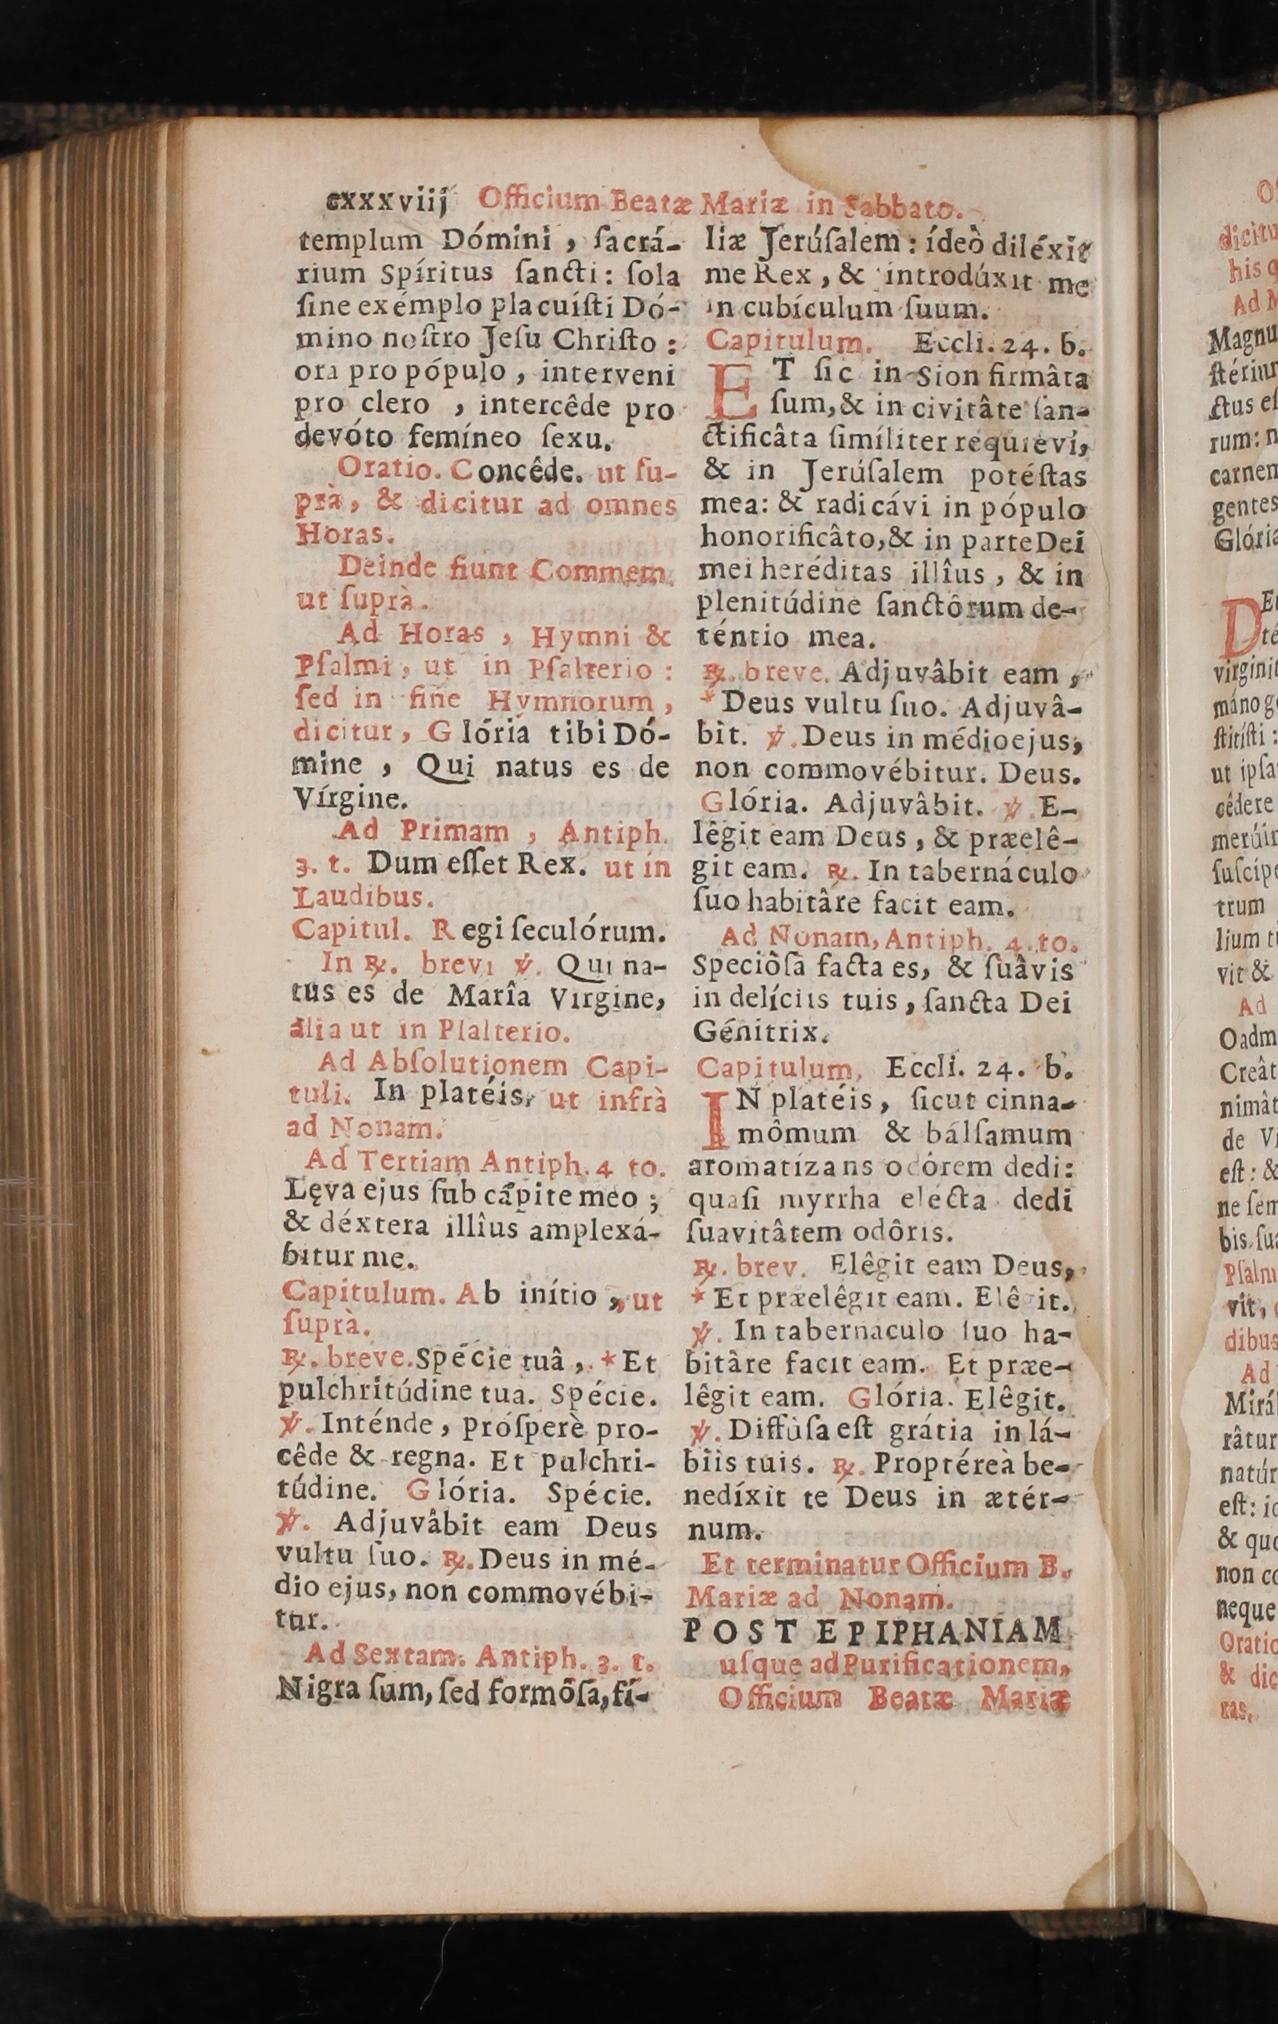 cxxxviij Officium Beatæ Mariæ in Sabbato.
templum Dómini, ſacrá-
rium Spíritus ſancti: ſola
ſine exémplo placuíſti Dó-
mino noſtro Jeſu Chriſto:
ora pro pópulo, interveni
pro clero, intercêde pro
devóto femíneo ſexu.
Oratio. Concêde. ut ſu-
prà, & dicitur ad omnes
Horas.
Deinde fiunt Commem.
ut ſuprà.
Ad Horas, Hymni &
Pſalmi, ut in Pſalterio:
ſed in fine Hymnorum,
dicitur, Glória tibi Dó-
mine, Qui natus es de
Vírgine.
Ad Primam, Antiph.
3. t. Dum eſſet Rex. ut in
Laudibus.
Capitul. Regi ſeculórum.
In ℟. brevi ℣. Qui na-
tus es de Marîa Virgine,
alia ut in Pſalterio.
Ad Abſolutionem Capi-
tuli. In platéis, ut infrà
ad Nonam.
Ad Tertiam Antiph. 4 to.
Lęva ejus ſub cápite meo;
& déxtera illîus amplexá-
bitur me.
Capitulum. Ab inítio, ut
ſuprà.
℟. breve. Spécie tuâ, * Et
pulchritúdine tua. Spécie.
℣. Inténde, próſperè pro-
cêde & regna. Et pulchri-
túdine. Glória. Spécie.
℣. Adjuvâbit eam Deus
vultu ſuo. ℟. Deus in mé-
dio ejus, non commovébi-
tur.
Ad Sextam. Antiph. 3. t.
Nigra ſum, ſed formôſa, fí-
liæ Jerúſalem: ídeò diléxit
me Rex, & introdúxit me
in cubículum ſuum.
Capitulum. Eccli. 24. b.
ET ſic in Sion firmâta
ſum, & in civitâte ſan-
ctificâta ſimíliter requiévi,
& in Jerúſalem potéſtas
mea: & radicávi in pópulo
honorificâto, & in parte Dei
mei heréditas illîus, & in
plenitúdine ſanctôrum de-
téntio mea.
℟. breve. Adjuvâbit eam,
* Deus vultu ſuo. Adjuvâ-
bit. ℣. Deus in médio ejus,
non commovébitur. Deus.
Glória. Adjuvâbit. ℣. E-
lêgit eam Deus, & præelê-
git eam. ℟. In tabernáculo
ſuo habitâre facit eam.
Ad Nonam, Antiph. 4. to.
Speciôſa facta es, & ſuâvis
in delíciis tuis, ſancta Dei
Génitrix.
Capitulum, Eccli. 24. b.
IN platéis, ſicut cinna-
mômum & bálſamum
aromatízans odôrem dedi:
quaſi myrrha elécta dedi
ſuavitâtem odôris.
℟. brev. Elêgit eam Deus,
* Et præelêgit eam. Elê it.
℣. In tabernaculo ſuo ha-
bitâre facit eam. Et præe-
lêgit eam. Glória. Elêgit.
℣. Diffúſa eſt grátia in lá-
biis tuis. ℟. Proptéreà be-
nedíxit te Deus in ætér-
num.
Et terminatur Officium B.
Mariæ ad Nonam.
POST EPIPHANIAM
uſque ad Purificationem,
Officium Beatæ Mariæ